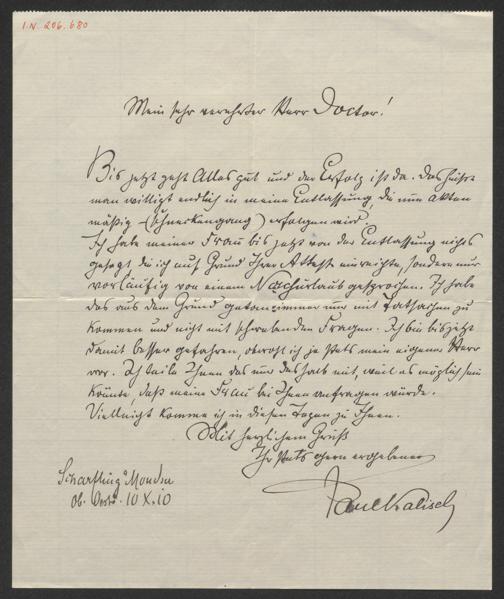 I.N. 206.680
Mein sehr verehrter Herr Doctor!
Bis jetzt geht Alles gut und der Erfolg ist da. Das heißt
man willigt endlich in meine Entlassung, die nun akten
mäßig – (Schneckengang) erfolgen wird.
Ich habe meiner Frau bis jetzt von der Entlassung nichts
gesagt die ich auf Grund Ihres Attestes einreichte, sondern nur
vorläufig von einem Nachurlaub gesprochen. Ich habe
das aus dem Grund getan immer nur mit Tatsachen zu
kommen und nicht mit schwebenden Fragen. Ich bin bis jetzt
damit besser gefahren, obwohl ich ja stets mein eigener Herr
war. Ich teile Ihnen das nur deshalb mit, weil es möglich sein
könnte, daß meine Frau bei Ihnen anfragen würde.
Vielleicht komme ich in diesen Tagen zu Ihnen.
Mit herzlichem Gruß
Ihr stets gern ergebener
Paul Kalisch
Scharfling Mondsee
Ob. Oestr. 10 X. 10